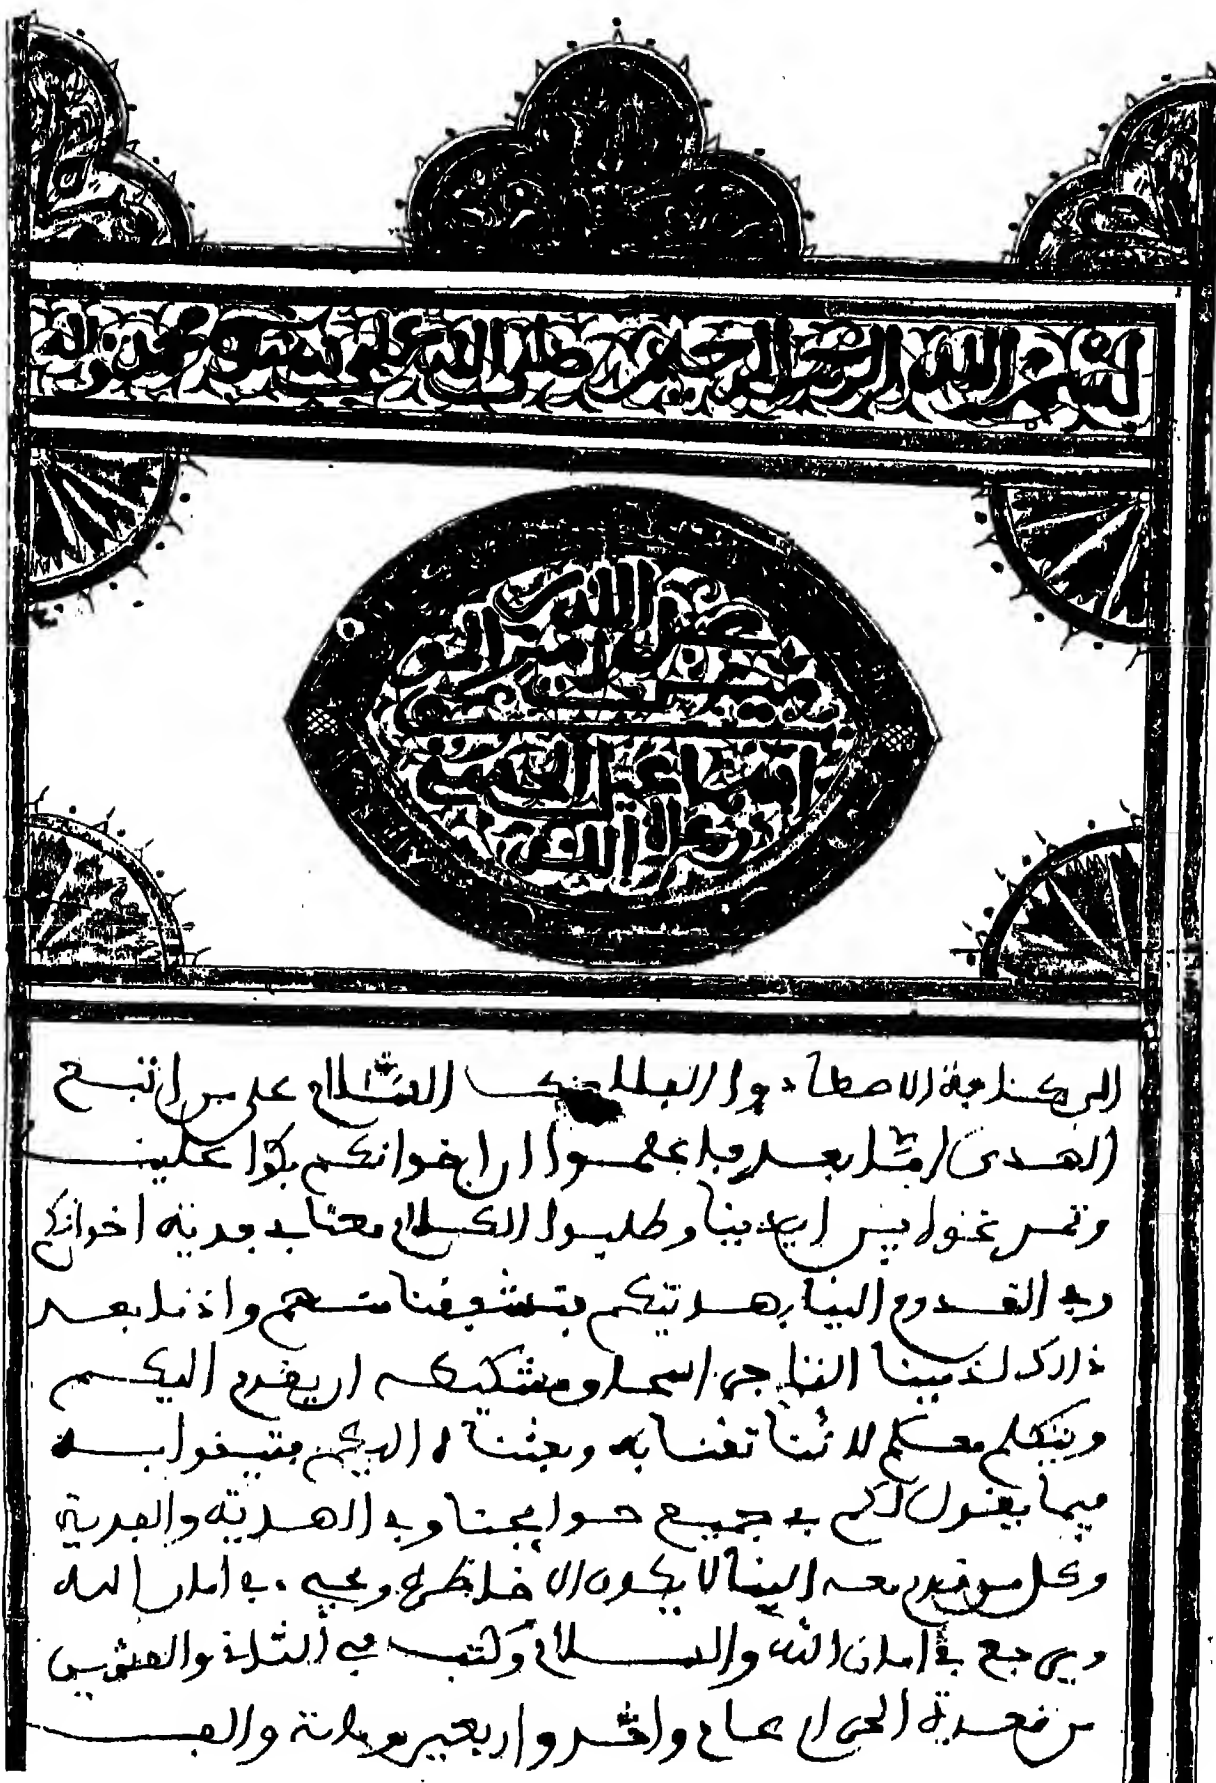 بسم الله الرحمن الرحيم صلى الله على سيدنا ومولانا محمد وآله
عن أمر الله
إسماعيل الحسني
الى كنابة الاصطادوا الفلامنك السلام على من اتبع
الهدى امّا بعد فاعلموا ان اخوانكم بكوا علينـا
وتمرغوا بين ايدينا وطلبوا الكلام معنا في فدية اخوانكم
وفي القدوم الينا بهديتكم فتشوفنا منهم واذنا بعد
ذالك لذمينا التاجر اسحاق مشكيطه ان يقدم اليكم
ويتكلم معكم لانّنا تقنا به وبعثناه اليكم فتيقوا به
فيما يقول لكم في جميع حوايجنا وفي الهدية والفدية
وكل من قدم معه الينا لا يكون الا خاطره ويجيء في امان الله
ويرجع في امان الله والسلام وكتب في الثلاث والعشرين
من قعدة الحرام عام واحد واربعين ومائة والف